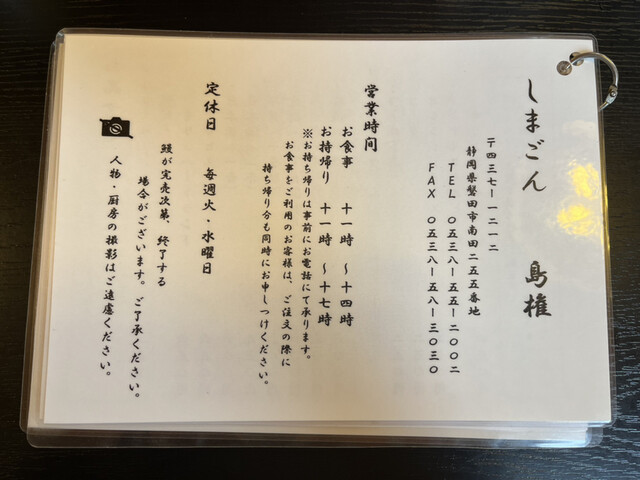 しまごん　島権
〒四三七ー一二一二
静岡県磐田市南田二五五番地
TEL　〇五三八ー五五ー二〇〇二
FAX　〇五三八ー五八ー三〇三〇
営業時間
お食事　十一時　～十四時
お持帰り　十一時　～十七時
※お持ち帰りは事前にお電話にて承ります。
お食事をご利用のお客様は、ご注文の際に
持ち帰り分も同時にお申しつけください。
定休日　毎週火・水曜日
鰻が完売次第、終了する
場合がございます。ご了承ください。
人物・厨房の撮影はご遠慮ください。